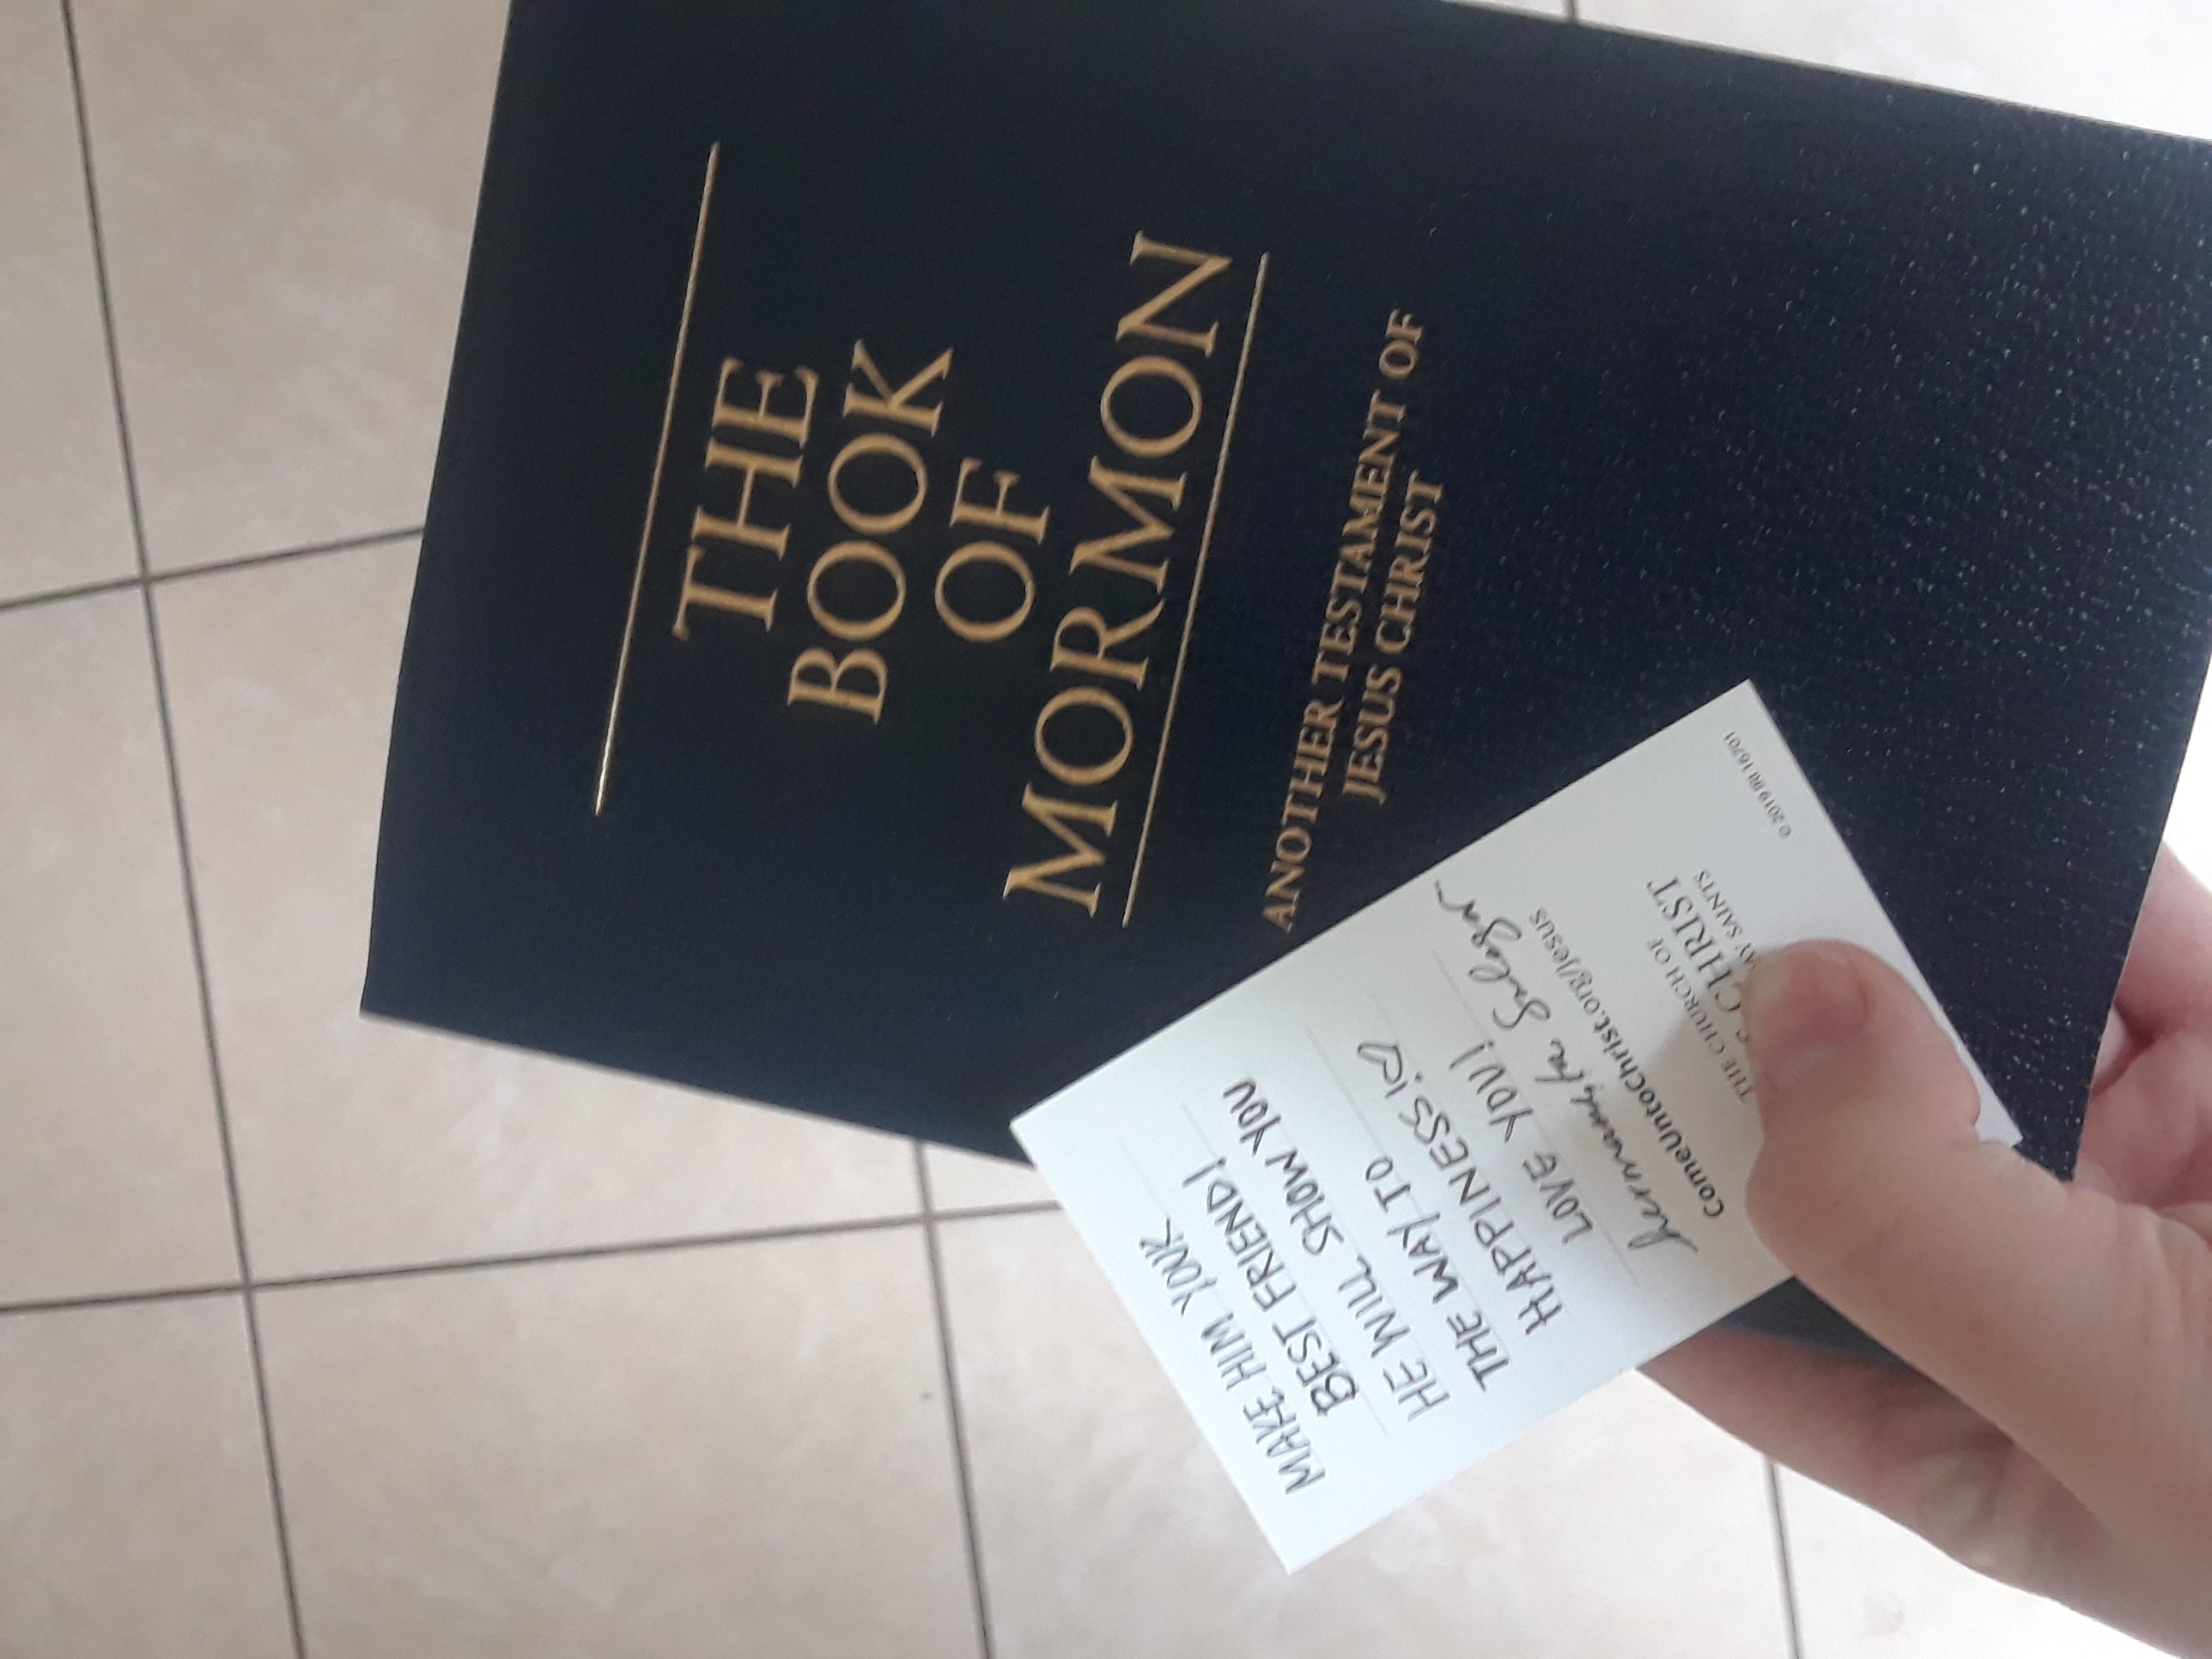 MAKE HIM YOUR
BEST FRIEND!
HE WILL SHOW YOU
THE WAY TO
HAPPINESS!♡
LOVE YOU!
hermanita
ComeUntoChrist.org/Jesus
THE CHURCH OF
CHRIST
SAINTS
© 2019 IRI 16701
THE
BOOK
OF
MORMON
ANOTHER TESTAMENT OF
JESUS CHRIST